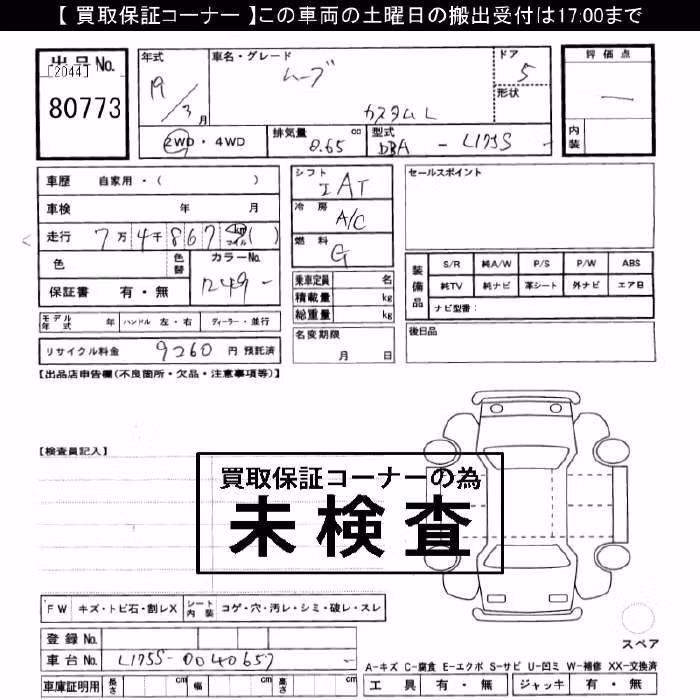 【 買取保証コーナー 】この車両の土曜日の搬出受付は17:00まで
出品No.
[2044]
80773
年式
19/3月
車名・グレード
ムーブ
カスタムL
ドア
5
形状
評価点
—
内装
2WD・4WD
排気量 0.65 cc
型式 DBA - L175S -
車歴 自家用・( )
車検 年 月
走行 7万4千867 km マイル ( )
色
色替
カラーNo.
保証書 有・無
シフト
IAT
冷房
A/C
燃料
G
乗車定員 名
積載量 kg
総重量 kg
名変期限
月 日
セールスポイント
装備品
S/R 純A/W P/S P/W ABS
純TV 純ナビ 革シート 外ナビ エアB
ナビ型番：
後日品
モデル年式 年 ハンドル 左・右 ディーラー・並行
リサイクル料金 9260 円 預託済
【出品店申告欄(不良箇所・欠品・注意事項等)】
【検査員記入】
買取保証コーナーの為
未検査
FW キズ・トビ石・割レX シート内装 コゲ・穴・汚レ・シミ・破レ・スレ
登録No.
車台No. L175S-0040657 -
車庫証明用 長さ cm 幅 cm 高さ cm
スペア
A-キズ C-腐食 E-エクボ S-サビ U-凹ミ W-補修 XX-交換済
工具 有・無 ジャッキ 有・無